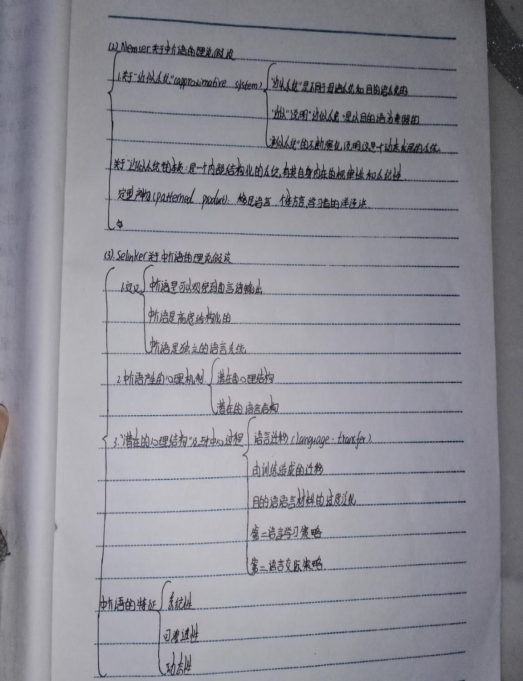 (2) Nemser关于中介语的理论假设
1.关于“近似系统”(approximative system)
“近似系统”是不同于母语系统和目的语系统的
“近似”说明“近似系统”是以目的语为参照的
“近似系统”的不断演化,说明这是一个动态发展的系统。
关于“近似系统”的特点:是一个内部结构化的系统,有其自身内在的规律性和系统性
定型产物(patterned product).
(3). Selinker关于中介语的理论假设
1.定义
中介语是可以观察到的言语输出
中介语是高度结构化的
中介语是独立的语言系统
2.中介语产生的心理机制
潜在的心理结构
潜在的语言结构
3.“潜在的心理结构”
语言迁移(language transfer)
由训练造成的迁移
目的语语言材料的过度泛化
第二语言学习策略
第二语言交际策略
中介语的特征
系统性
可渗透性
动态性